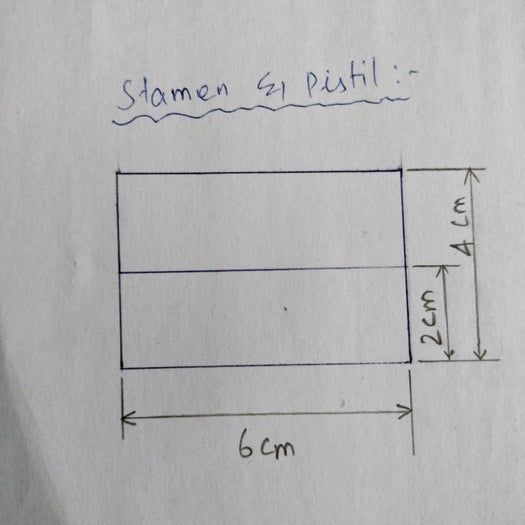 Stamen & Pistil :-
4 cm
2 cm
6 cm